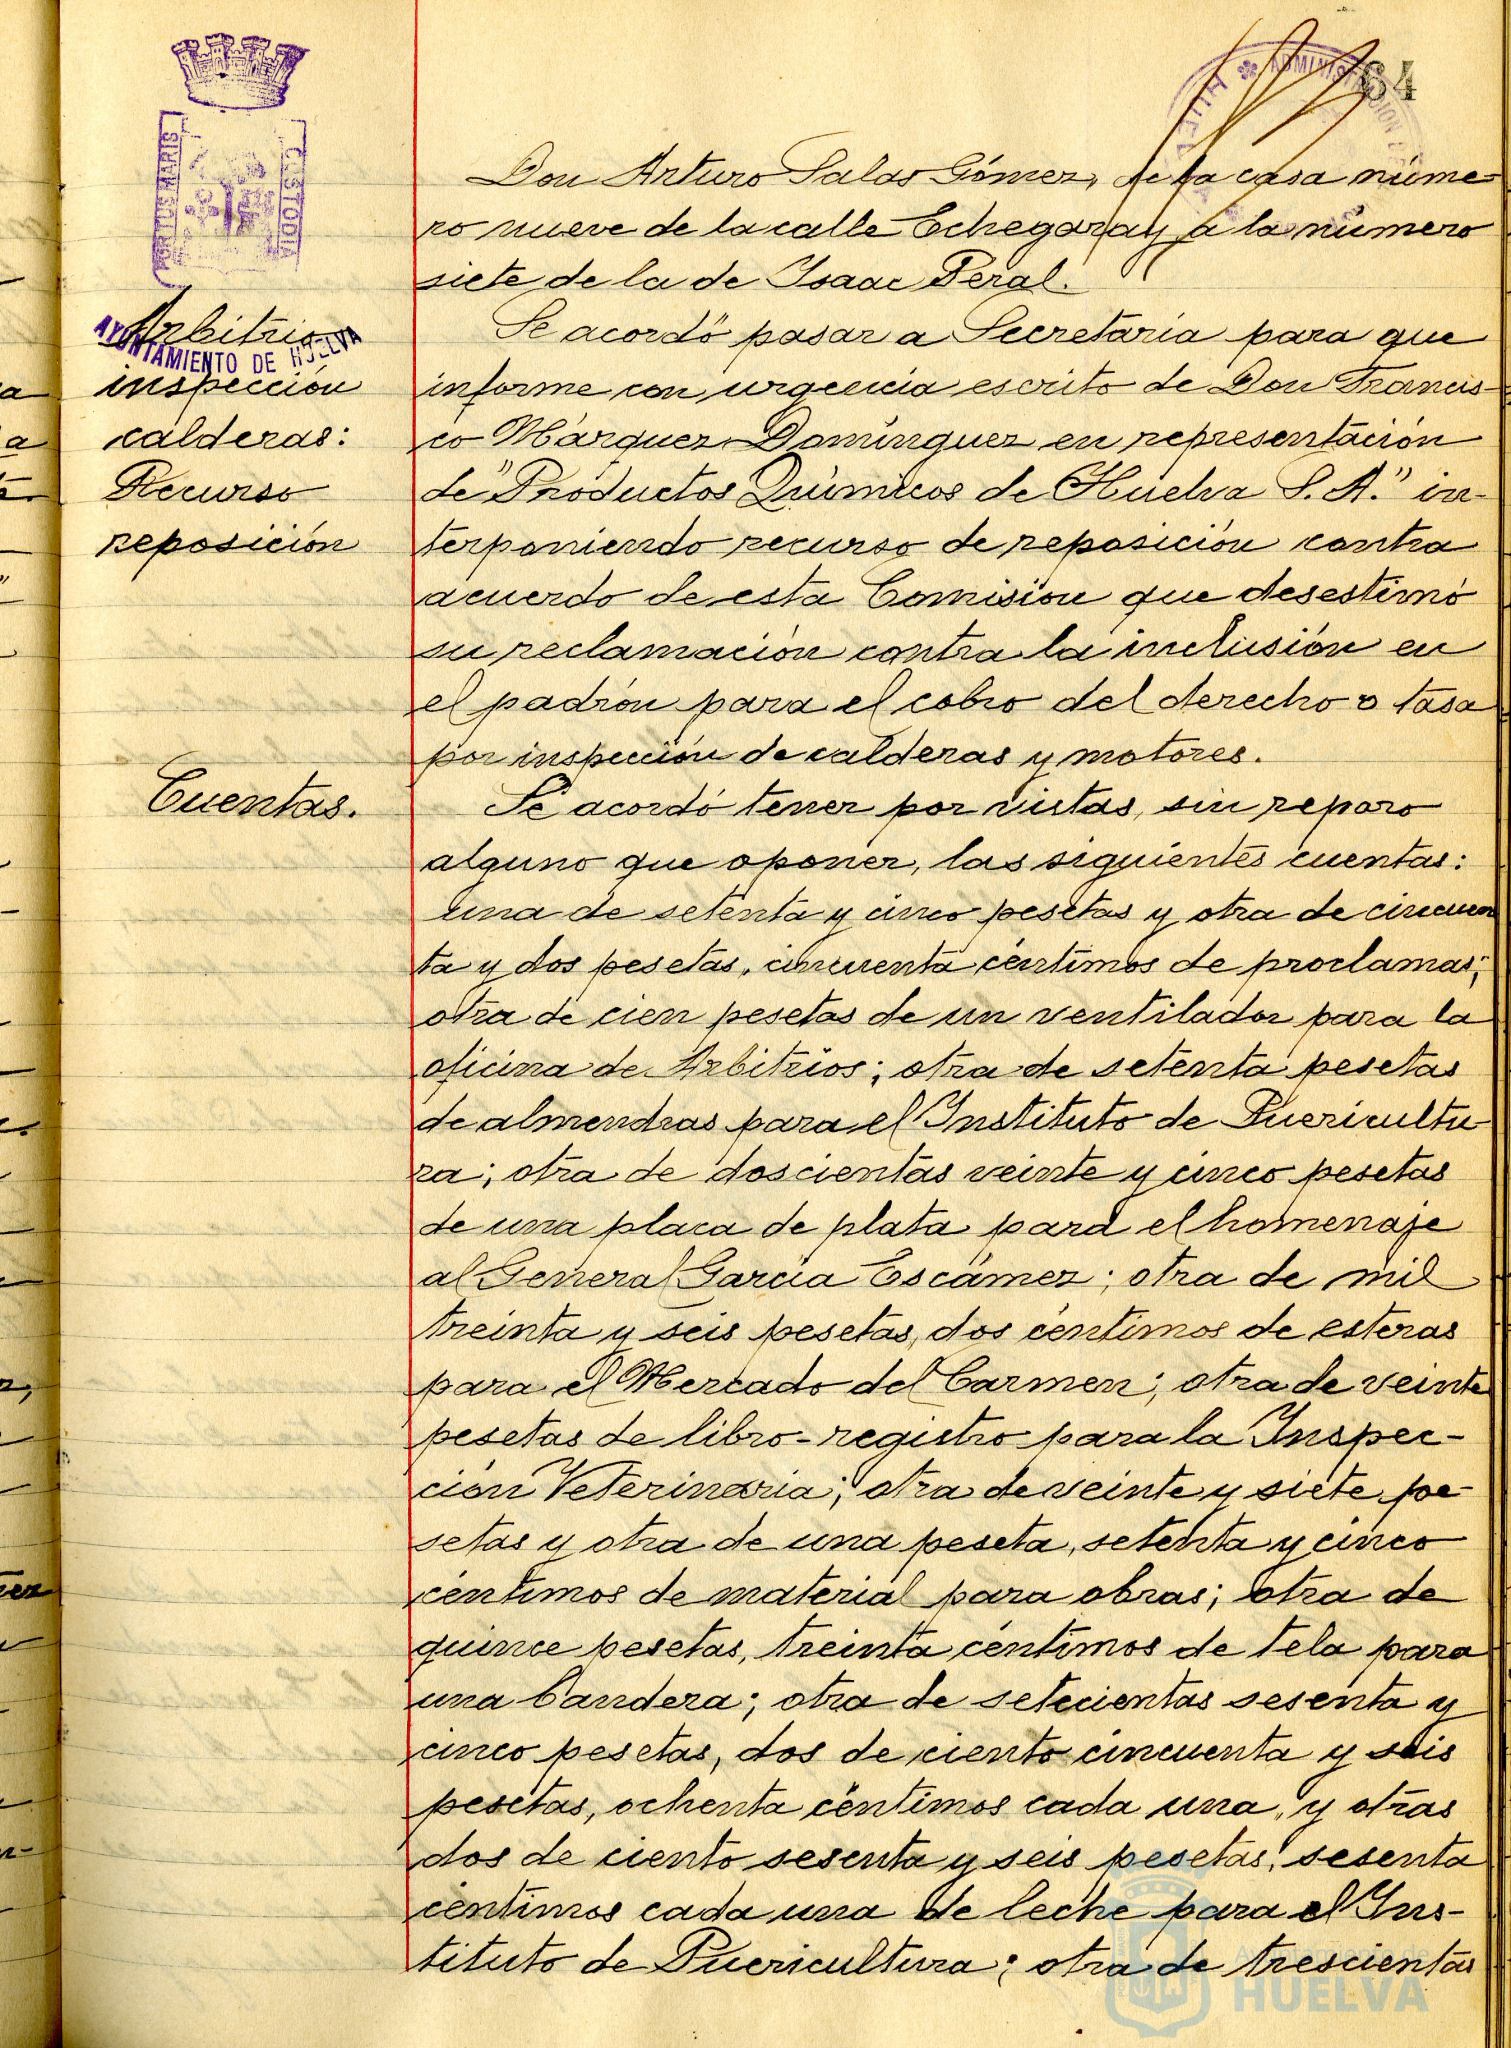 64
PORTUS MARIS
CUSTODIA
AYUNTAMIENTO DE HUELVA
Don Arturo Salas Gómez, de la casa núme-
ro nueve de la calle Echegaray, a la número
siete de la de Isaac Peral.
Arbitrio
inspección
calderas:
Recurso
reposición
Se acordó pasar a Secretaría para que
informe con urgencia escrito de Don Francis-
co Márquez Domínguez en representación
de "Productos Químicos de Huelva S. A." in-
terponiendo recurso de reposición contra
acuerdo de esta Comisión que desestimó
su reclamación contra la inclusión en
el padrón para el cobro del derecho o tasa
por inspección de calderas y motores.
Cuentas.
Se acordó tener por vistas, sin reparo
alguno que oponer, las siguientes cuentas:
una de setenta y cinco pesetas y otra de cincuen
ta y dos pesetas, cincuenta céntimos de proclamas;
otra de cien pesetas de un ventilador para la
oficina de Arbitrios; otra de setenta pesetas
de almendras para el Instituto de Puericultu-
ra; otra de doscientas veinte y cinco pesetas
de una placa de plata para el homenaje
al General García Escámez; otra de mil
treinta y seis pesetas, dos céntimos de esteras
para el Mercado del Carmen; otra de veinte
pesetas de libro-registro para la Inspec-
ción Veterinaria; otra de veinte y siete pe-
setas y otra de una peseta, setenta y cinco
céntimos de material para obras; otra de
quince pesetas, treinta céntimos de tela para
una bandera; otra de setecientas sesenta y
cinco pesetas, dos de ciento cincuenta y seis
pesetas, ochenta céntimos cada una, y otras
dos de ciento sesenta y seis pesetas, sesenta
céntimos cada una de leche para el Ins-
tituto de Puericultura; otra de trescientas
HUELVA